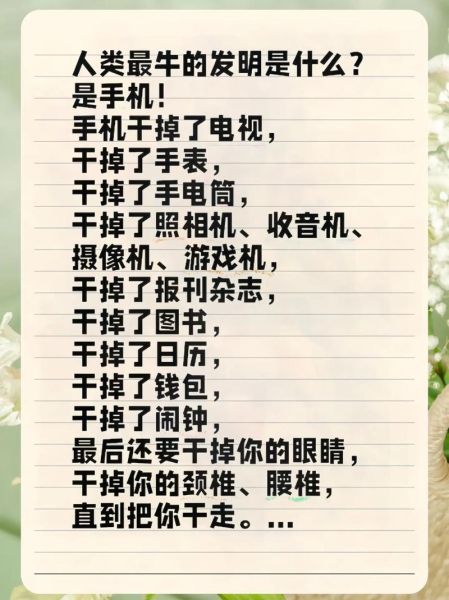 人类最牛的发明是什么？
是手机！
手机干掉了电视，
干掉了手表，
干掉了手电筒，
干掉了照相机、收音机、
摄像机、游戏机，
干掉了报刊杂志，
干掉了图书，
干掉了日历，
干掉了钱包，
干掉了闹钟，
最后还要干掉你的眼睛，
干掉你的颈椎、腰椎，
直到把你干走。...